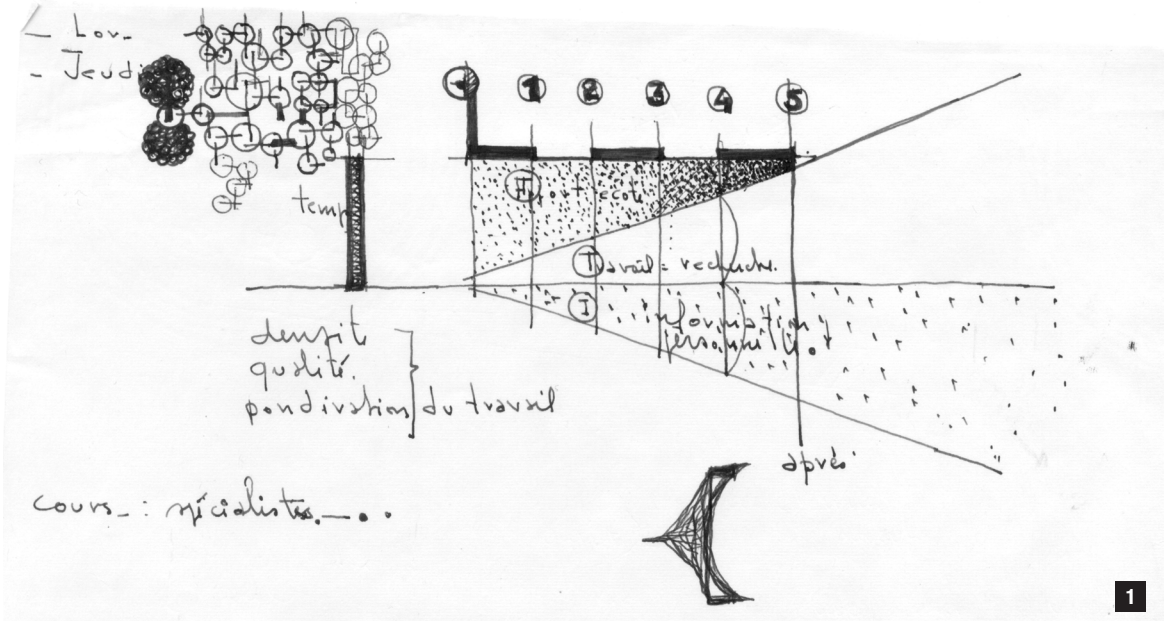 - Lov-
- Jeudi
1 2 3 4 5
temps
T
Travail = recherche.
I information
personnelle.
densité
qualité.
pondération du travail
après
cours - : spécialistes. - . .
1